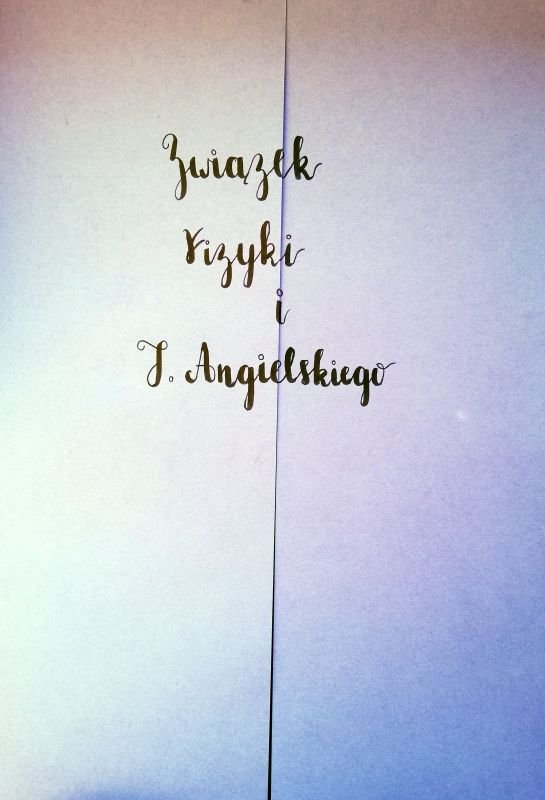 Związek
Fizyki
i
J. Angielskiego